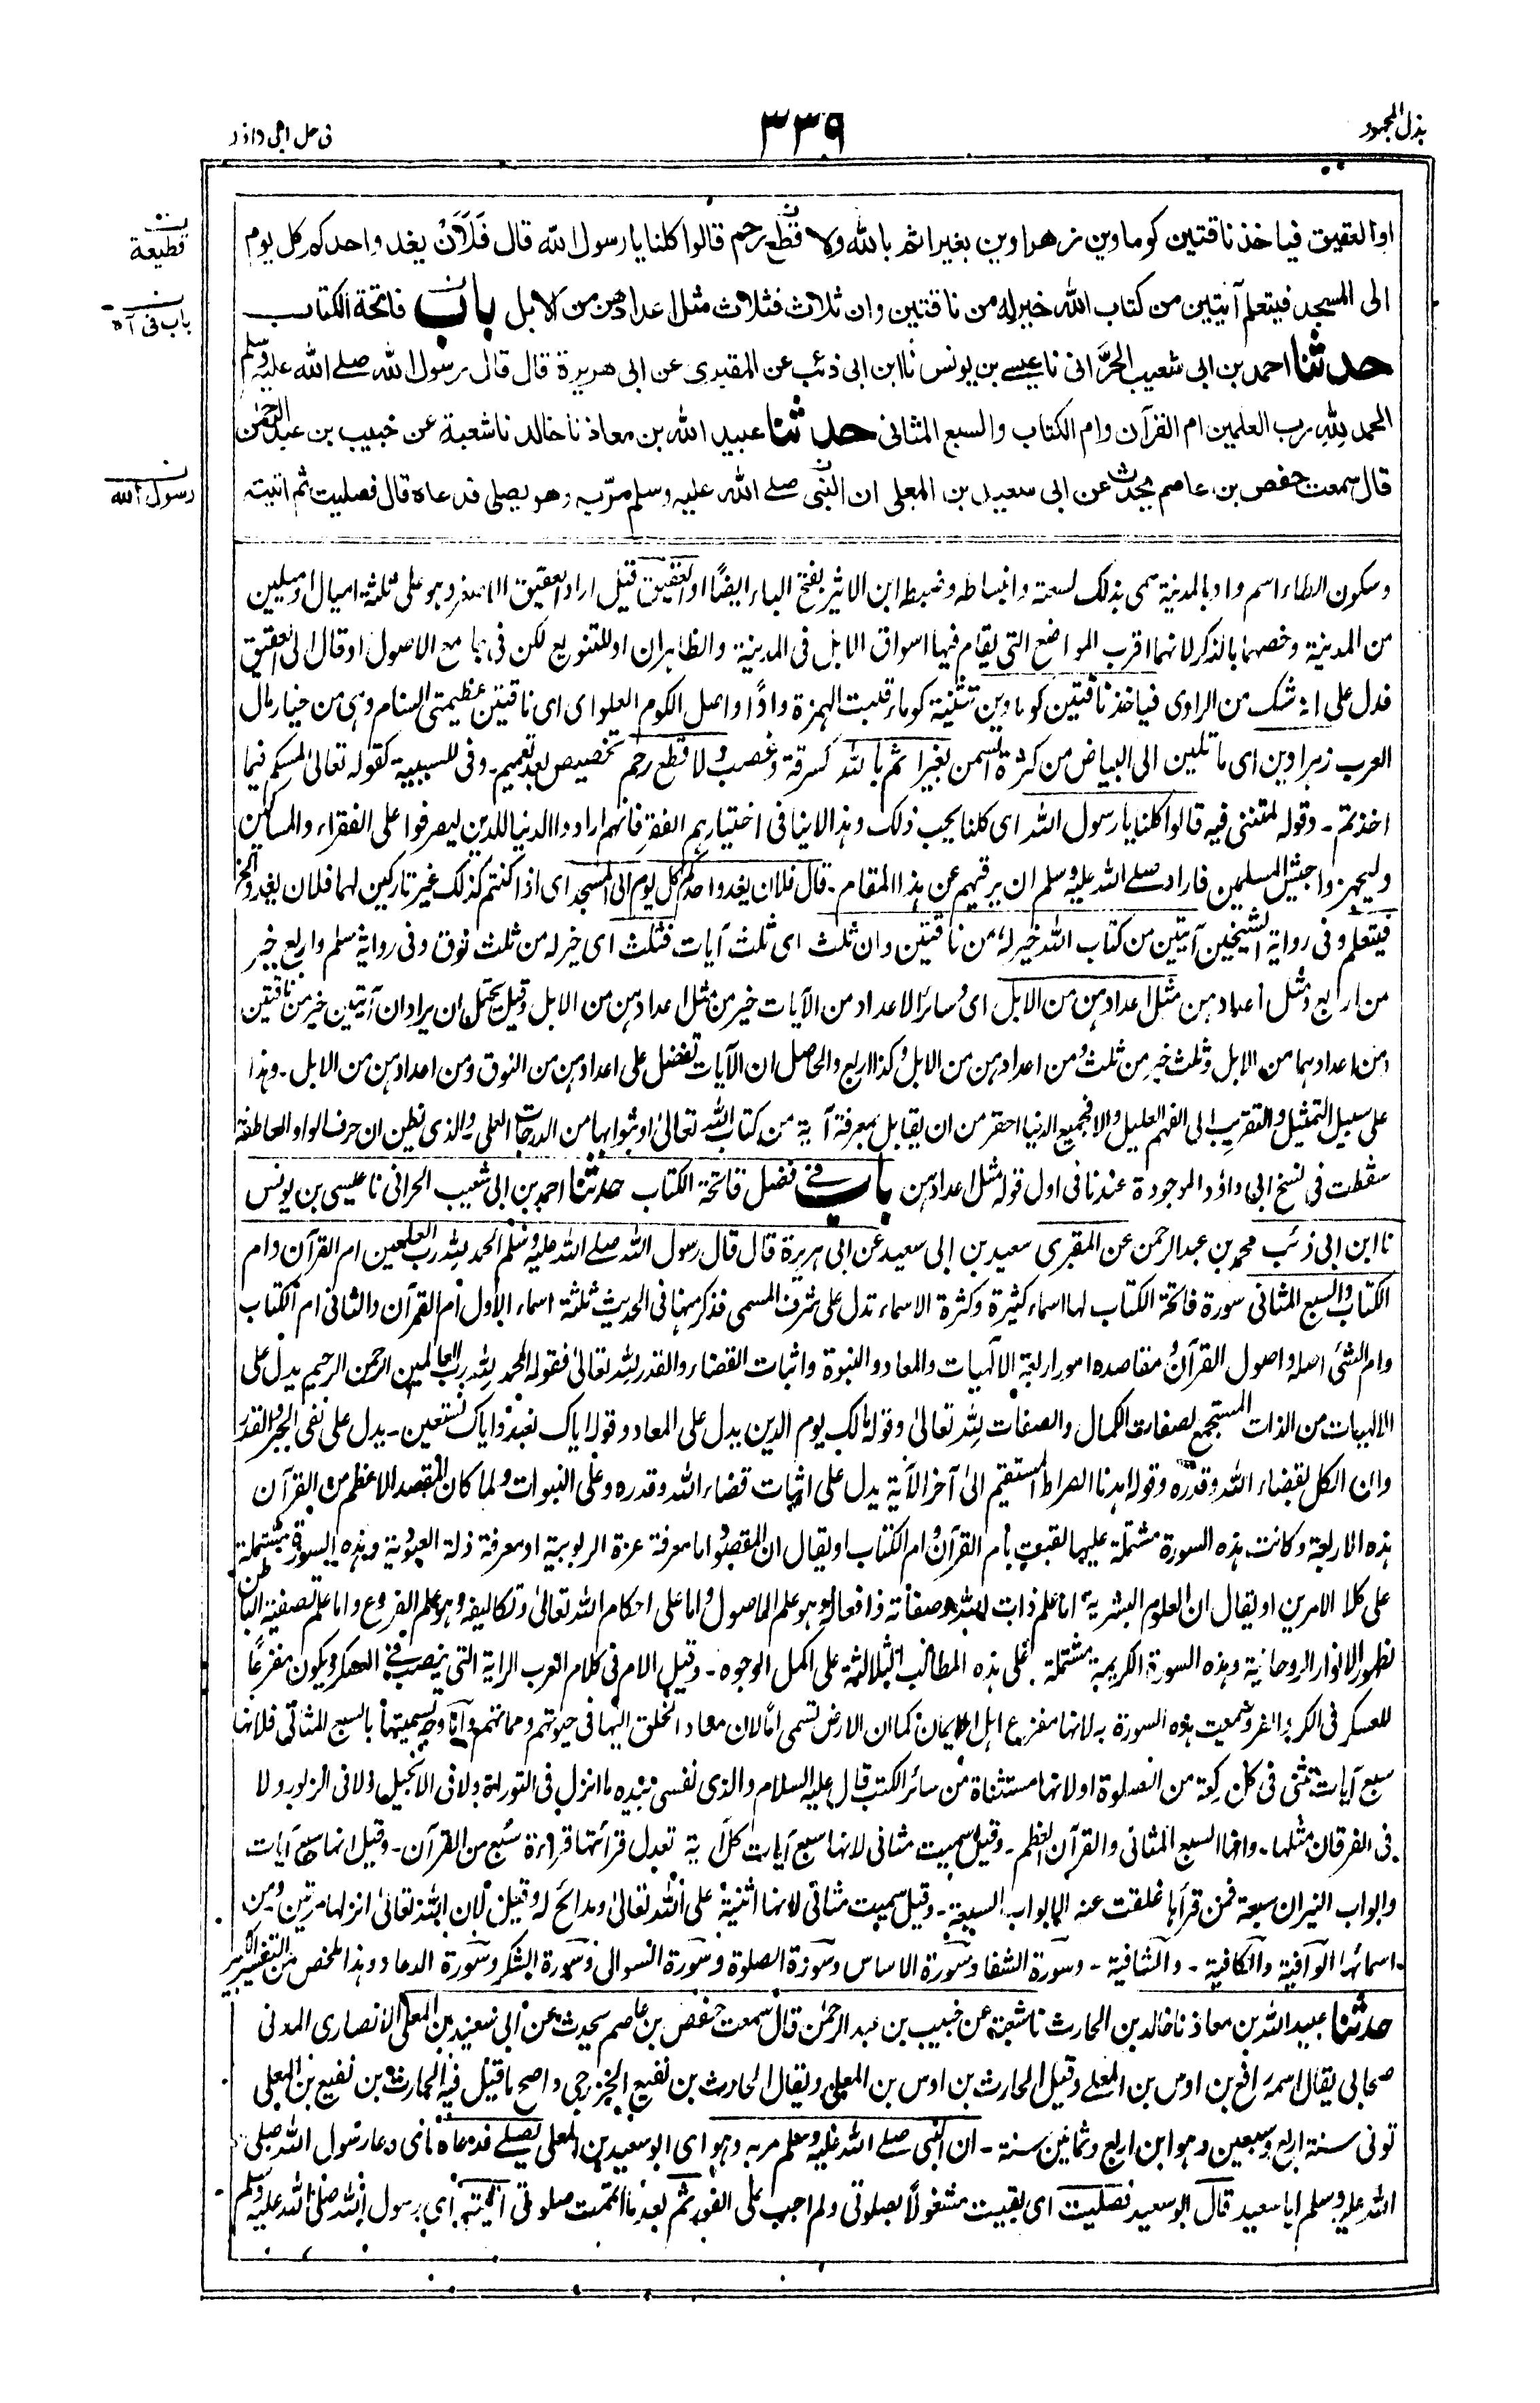 بذل المجهود
٣٣٩
فى حل ابى داؤد
او العقيق فياخذ ناقتين كوماوين زهراوين بغير اثم بالله ولا قطع رحم قالوا كلنا يا رسول الله قال فَلَاَنْ يغدو احدكم كل يوم
قطيعة
الى المسجد فيتعلم آيتين من كتاب الله خير له من ناقتين وان ثلاث فثلاث مثل اعدادهن من الابل باب فاتحة الكتاب
باب فى آه
حدثنا احمد بن ابى شعيب الحرَّانى نا عيسى بن يونس نا ابن ابى ذئب عن المقبرى عن ابى هريرة قال قال رسول الله صلے الله عليه وسلم
الحمد لله رب العلمين ام القرآن وام الكتاب والسبع المثانى حدثنا عبيد الله بن معاذ نا خالد نا شعبة عن خبيب بن عبد الرحمن
قال سمعت حفص بن عاصم يحدث عن ابى سعيد بن المعلى ان النبى صلے الله عليه وسلم مرّ به وهو يصلى فدعاه قال فصليت ثم اتيته
رسول الله
وسكون الطاء اسم واد بالمدينة سمى بذلك لسعته وانبساطه وضبط ابن الاثير بفتح الباء ايضًا او العقيق قيل اراد العقيق الاصغر وهو على ثلثة اميال او ميلين
من المدينة وخصهما بالذكر لانهما اقرب المواضع التى يقام فيها اسواق الابل فى المدينة والظاهر ان او للتنويع لكن فى جامع الاصول او قال الى العقيق
فدل على انه شك من الراوى فياخذ ناقتين كوماوين تثنية كوماء قلبت الهمزة واوًا واصل الكوم العلو اى اى ناقتين عظيمتى السنام وهى من خيار مال
العرب زهراوين اى مائلتين الى البياض من كثرة السمن بغير اثم بالله كسرقة وغصب ولا قطع رحم تخصيص بعد تعميم۔ وفى للسببية كقوله تعالى لمسكم فيما
اخذتم۔ وقوله لمتننى فيه قالوا كلنا يا رسول الله اى كلنا يحب ذلك وهذا لا ينافى اختيارهم الفقر فانهم ارادوا الدنيا للدين ليصرفوا على الفقراء والمساكين
وليجهزوا جيش المسلمين فاراد صلے الله عليه وسلم ان يرقيهم عن هذا المقام۔ قال فلان يغدو احدكم كل يوم الى المسجد اى اذا كنتم كذلك غير تاركين لها فلان يغدو الخ
فيتعلم وفى رواية الشيخين آيتين من كتاب الله خير له من ناقتين وان ثلث اى ثلث آيات فثلث اى خير له من ثلث نوق وفى رواية مسلم واربع خير
من اربع ومثل اعدادهن مثل اعدادهن من الابل اى سائر الاعداد من الآيات خير من مثل اعدادهن من الابل وقيل يحتمل ان يراد ان آيتين خير من ناقتين
ومن اعدادهما من الابل وثلث خير من ثلث ومن اعدادهن من الابل وكذا اربع والحاصل ان الآيات تفضل على اعدادهن من النوق ومن اعدادهن من الابل۔ وهذا
على سبيل التمثيل والتقريب الى الفهم العليل والا فجميع الدنيا احقر من ان يقابل بمعرفة آية من كتاب الله تعالى او ثوابها من الدرجات العلى۔ والذى نظن ان حرف الواو العاطفة
سقطت فى نسخ ابى داؤد الموجودة عندنا فى اول قوله مثل اعدادهن باب فى فضل فاتحة الكتاب حدثنا احمد بن ابى شعيب الحرانى نا عيسى بن يونس
نا ابن ابى ذئب محمد بن عبد الرحمن عن المقبرى سعيد بن ابى سعيد عن ابى هريرة قال قال رسول الله صلے الله عليه وسلم الحمد لله رب العلمين ام القرآن وام
الكتاب والسبع المثانى سورة فاتحة الكتاب لها اسماء كثيرة وكثرة الاسماء تدل على شرف المسمى فذكر منها فى الحديث ثلثة اسماء الاول ام القرآن والثانى ام الكتاب
وام الشئ اصله واصول القرآن ومقاصده امور اربعة الالٰهيات والمعاد والنبوة واثبات القضاء والقدر لله تعالى فقوله الحمد لله رب العالمين الرحمن الرحيم يدل على
الالهيات من الذات المستجمع لصفات الكمال والصفات لله تعالى وقوله مالك يوم الدين يدل على المعاد وقوله اياك نعبد واياك نستعين۔ يدل على نفى الجبر والقدر
وان الكل بقضاء الله وقدره وقوله اهدنا الصراط المستقيم الى آخر الآية يدل على اثبات قضاء الله وقدره وعلى النبوات ولما كان المقصد الاعظم من القرآن
هذه الاربعة وكانت هذه السورة مشتملة عليها لقبت بام القرآن وام الكتاب او يقال ان المقصود اما معرفة عزة الربوبية او معرفة ذلة العبودية وهذه السورة مشتملة
على كلا الامرين او يقال ان العلوم البشرية اما علم ذات الله وصفاته وافعاله وهو علم الاصول واما على احكام الله تعالى وتكاليفه وهو علم الفروع واما علم تصفية الباطن
لظهور الانوار الروحانية وهذه السورة الكريمة مشتملة على هذه المطالب الثلاثة على اكمل الوجوه۔ وقيل الام فى كلام العرب الراية التى ينصب فى العسكر ويكون مفزعًا
للعسكر فى الكر والفر وسميت هذه السورة به لانها مفزع اهل الايمان كما ان الارض تسمى امًا لان معاد الخلق اليها فى حيوتهم ومماتهم واما وجه تسميتها بالسبع المثانى فلانها
سبع آيات تثنى فى كل ركعة من الصلوة او لانها مستثناة من سائر الكتب قال عليه السلام والذى نفسى بيده ما انزل فى التوراة ولا فى الانجيل ولا فى الزبور ولا
فى الفرقان مثلها۔ وانها السبع المثانى والقرآن العظيم۔ وقيل سميت مثانى لانها سبع آيات كل آية تعدل قرائتها قراءة سبع من القرآن۔ وقيل انها سبع آيات
وابواب النيران سبعة فمن قرأها غلقت عنه الابواب السبعة۔ وقيل سميت مثانى لانها اثنية على الله تعالى ومدائح له وقيل لان الله تعالى انزلها مرتين ومن
اسمائها الوافية والكافية۔ والشافية۔ وسورة الشفا وسورة الاساس وسورة الصلوة وسورة السوال وسورة الشكر وسورة الدعاء وهذا ملخص من التفسير الكبير
حدثنا عبيد الله بن معاذ نا خالد بن الحارث نا شعبة عن خبيب بن عبد الرحمن قال سمعت حفص بن عاصم يحدث عن ابى سعيد بن المعلى الانصارى المدنى
صحابى يقال اسمه رافع بن اوس بن المعلے وقيل الحارث بن اوس بن المعلى ويقال الحارث بن نفيع الخزرجى واصح ما قيل فيه الحارث بن نفيع بن المعلى
توفى سنة اربع وسبعين وهو ابن اربع وثمانين سنة۔ ان النبى صلے الله عليه وسلم مر به وهو اى ابو سعيد بن المعلى يصلے فدعاه اى دعا رسول الله صلى
الله عليه وسلم ابا سعيد قال ابو سعيد فصليت اى بقيت مشغولًا بصلوتى ولم اجب على الفور ثم بعد ما اتممت صلوتى اتيته اى رسول الله صلى الله عليه وسلم